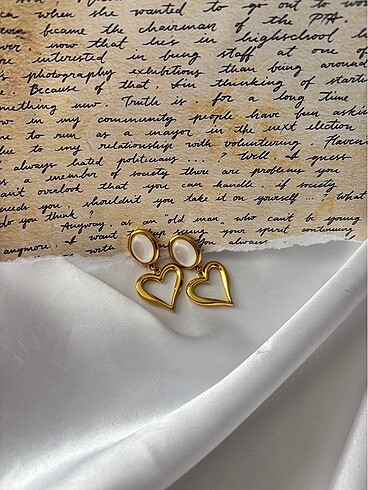 when she wanted to go out to the PTA.
became the chairman of the
ver, now that he's in highschool
re interested in being staff at one of
photography exhibitions than being around
Because of that, I'm thinking of starti
mething new. Truth is, for a long time
in my community people have been askin
to run as a mayor in the next election
e to my relationship with volunteering.
always hated politicians...? Well, I guess
a member of society there are problems you
can't overlook that you can handle. if society
needs you, shouldn't you take it on yourself...? What
do you think?
Anyway, as an "old man, who can't be young
anymore, I want seeing your spirit continuing
with you always